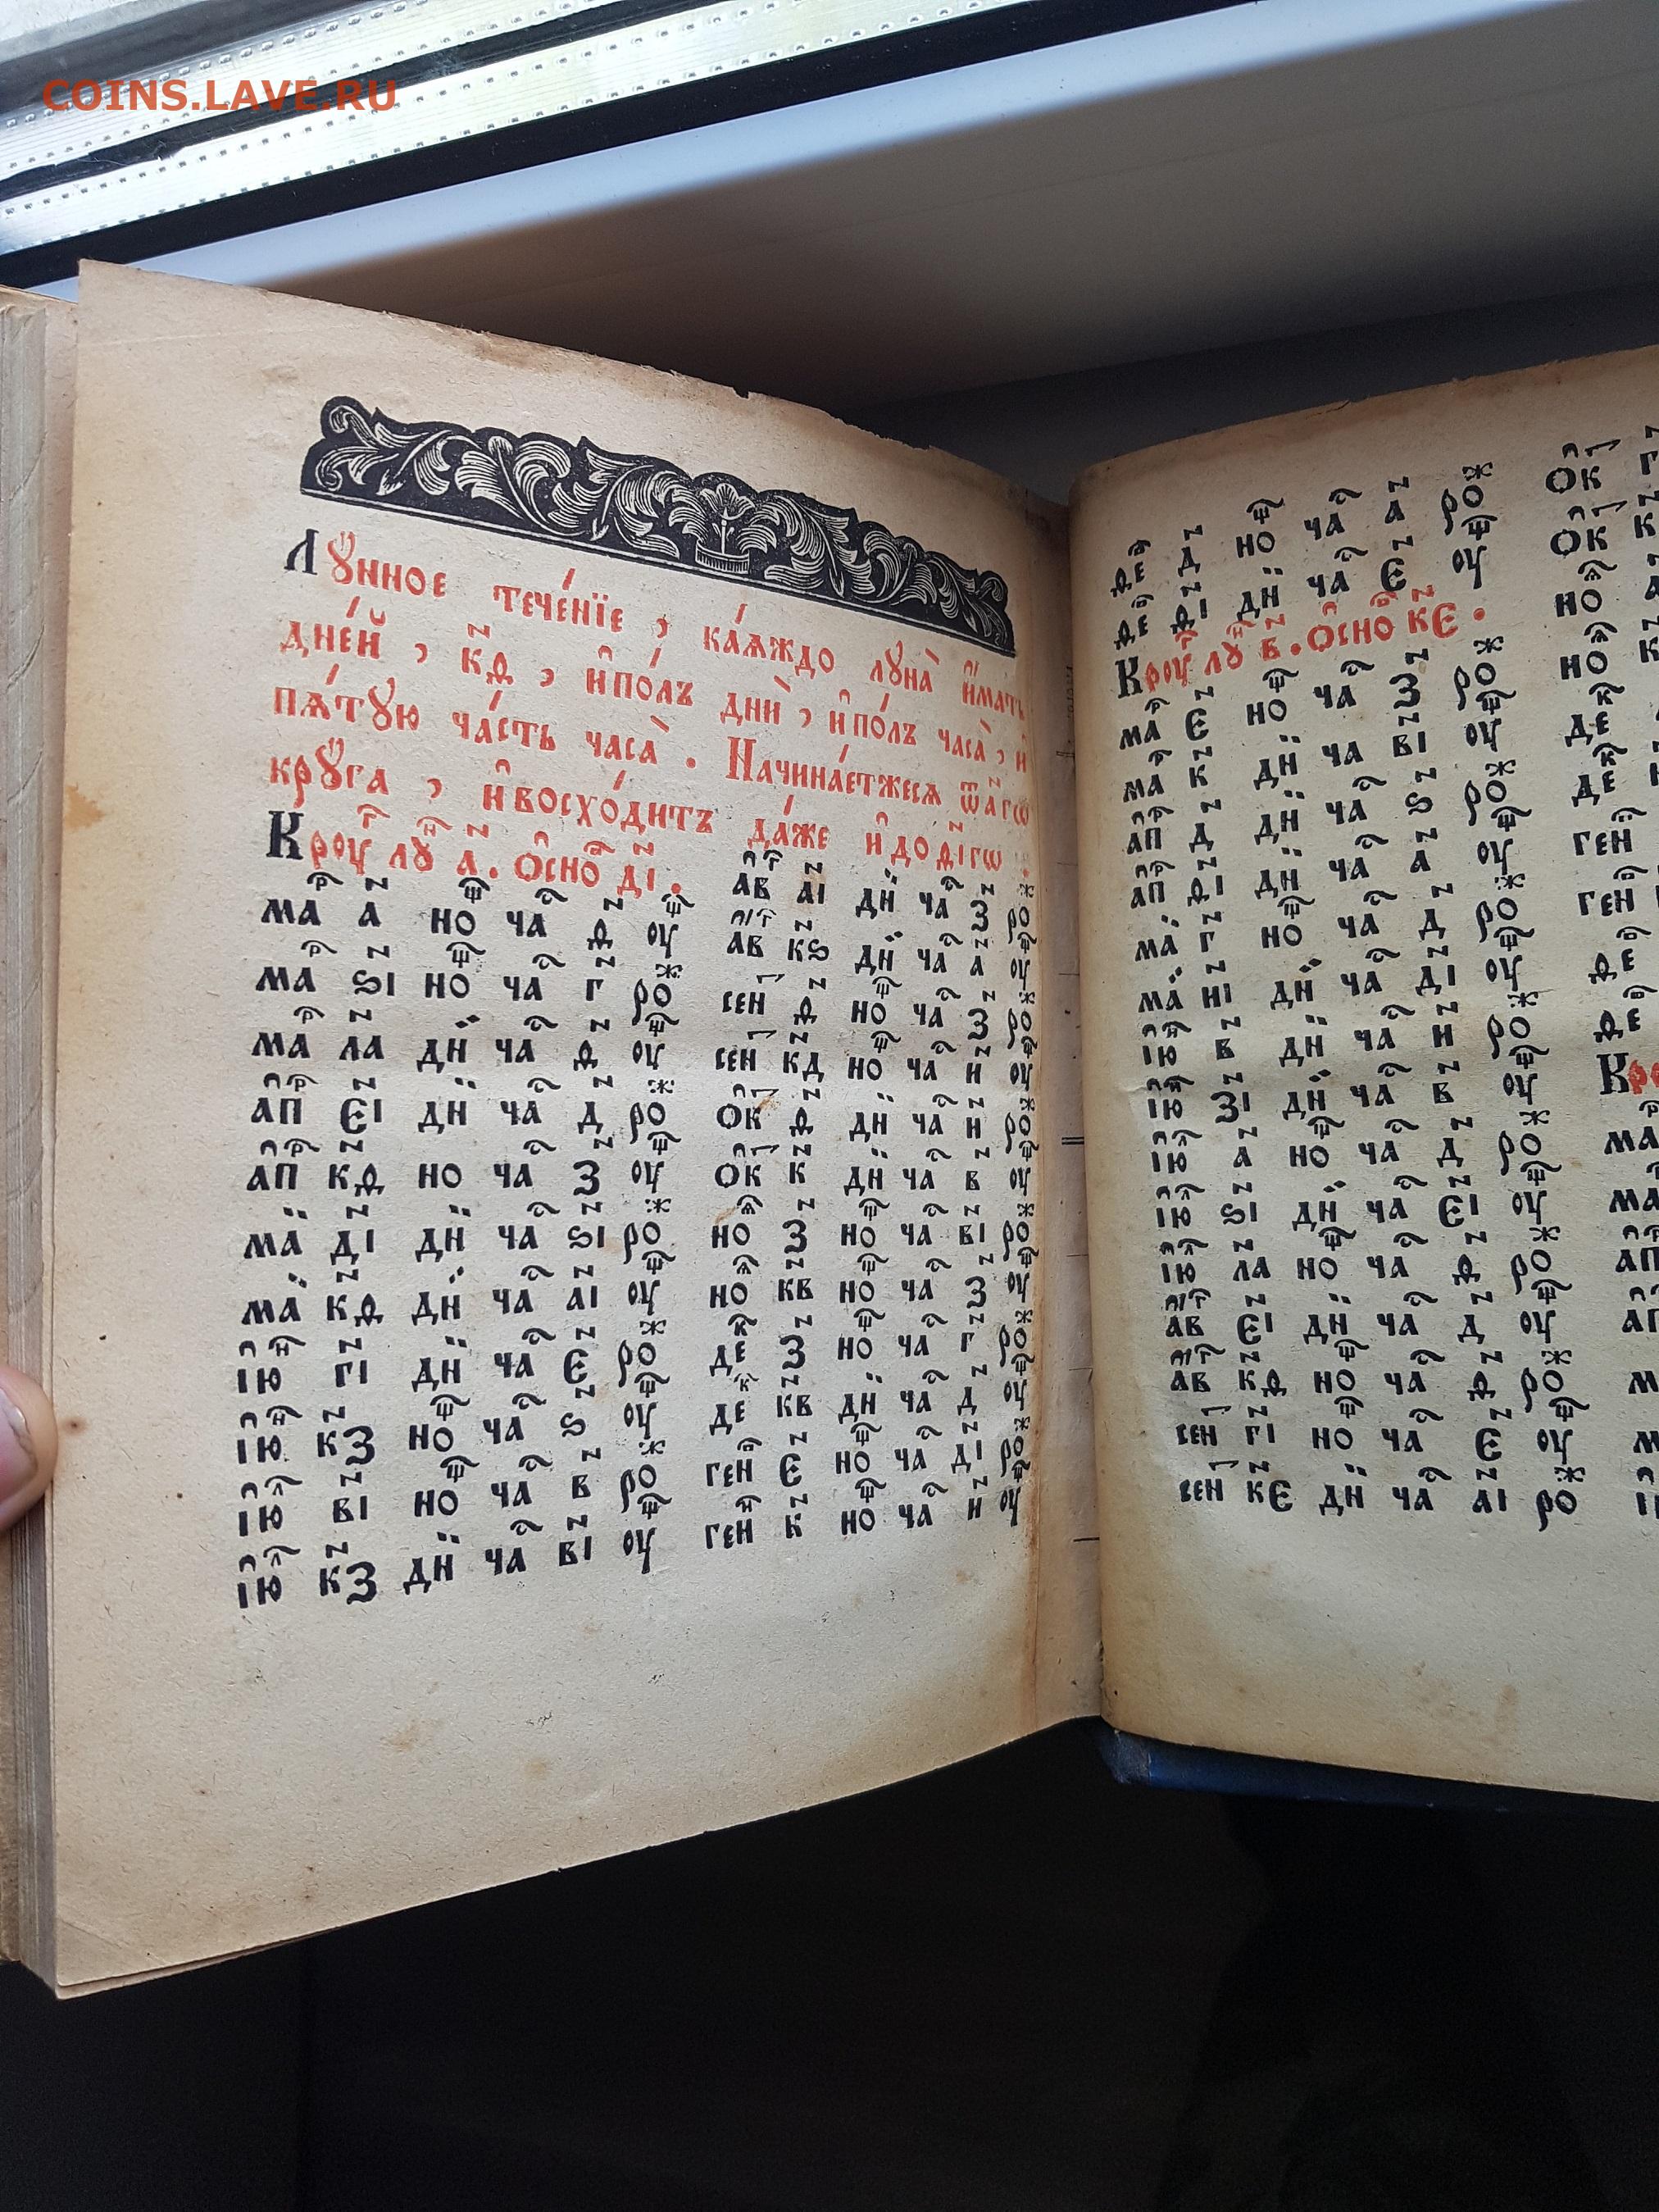 COINS.LAVE.RU
Лꙋнное тече́нїе , ка́ѧждо лꙋна̀ и҆́мать
дне́й , к҃ѳ , и҆по́лъ днѝ , и҆по́лъ часа̀ , и҆
пѧ́тꙋю ча́сть часа̀ . Начина́етжесѧ ѿ а҃гѡ
крꙋ́га , и҆восхо́дитъ да́же и҆ до ѳ҃ігѡ .
Крꙋⷢ҇ лꙋⷩ҇ а҃ . Ѻ҆сноⷡ҇ д҃і .
маⷬ҇ а҃ ноⷳ҇ чаⷭ҇ ѳ҃ ᲂуⷳ҇
маⷬ҇ ѕ҃і ноⷳ҇ чаⷭ҇ г҃ роⷤ
маⷬ҇ л҃а дн҃ чаⷭ҇ ѳ҃ ᲂуⷳ҇
а҆пⷬ҇ є҃і дн҃ чаⷭ҇ д҃ роⷤ
а҆пⷬ҇ к҃ѳ но чаⷭ҇ з҃ ᲂуⷳ҇
мӓ д҃і дн҃ чаⷭ҇ ѕ҃і роⷤ
мӓ к҃ѳ дн҃ чаⷭ҇ а҃і ᲂуⷳ҇
і҆юⷩ҇ г҃і дн҃ чаⷭ҇ є҃ роⷤ
і҆юⷩ҇ к҃з ноⷳ҇ чаⷭ҇ ѕ҃ ᲂуⷳ҇
і҆юⷧ҇ в҃і ноⷳ҇ чаⷭ҇ в҃ роⷤ
і҆юⷧ҇ к҃з дн҃ чаⷭ҇ в҃і ᲂуⷳ҇
а҆вⷢ҇ а҃і дн҃ чаⷭ҇ з҃ роⷤ
а҆вⷢ҇ к҃ѕ дн҃ чаⷭ҇ а҃ ᲂуⷳ҇
сен ѳ҃ ноⷳ҇ чаⷭ҇ з҃ роⷤ
сен к҃д ноⷳ҇ чаⷭ҇ и҃ ᲂуⷳ҇
ѻ҆к ѳ҃ дн҃ чаⷭ҇ и҃ роⷤ
ѻ҆к к҃ дн҃ чаⷭ҇ в҃ ᲂуⷳ҇
ноⷽ҇ з҃ ноⷳ҇ чаⷭ҇ в҃і роⷤ
ноⷽ҇ к҃в ноⷳ҇ чаⷭ҇ з҃ ᲂуⷳ҇
деⷦ҇ з҃ ноⷳ҇ чаⷭ҇ г҃ роⷤ
деⷦ҇ к҃в дн҃ чаⷭ҇ д҃ ᲂуⷳ҇
генⷡ҇ є҃ ноⷳ҇ чаⷭ҇ д҃і роⷤ
генⷡ҇ к҃ ноⷳ҇ чаⷭ҇ и҃ ᲂуⷳ҇
ѳеⷡ҇ д҃ ноⷳ҇ чаⷭ҇ а҃ роⷤ
ѳеⷡ҇ ѳ҃і дн҃ чаⷭ҇ є҃ ᲂуⷳ҇
Крꙋⷢ҇ лꙋⷩ҇ в҃ . Ѻ҆сноⷡ҇ к҃є .
маⷬ҇ є҃ ноⷳ҇ чаⷭ҇ з҃ роⷤ
маⷬ҇ к҃ дн҃ чаⷭ҇ в҃і ᲂуⷳ҇
а҆пⷬ҇ д҃ дн҃ чаⷭ҇ ѕ҃ роⷤ
а҆пⷬ҇ ѳ҃і дн҃ чаⷭ҇ а҃ ᲂуⷳ҇
мӓ г҃ ноⷳ҇ чаⷭ҇ д҃ роⷤ
мӓ и҃і дн҃ чаⷭ҇ д҃і ᲂуⷳ҇
і҆юⷩ҇ в҃ дн҃ чаⷭ҇ и҃ роⷤ
і҆юⷩ҇ з҃і дн҃ чаⷭ҇ в҃ ᲂуⷳ҇
і҆юⷧ҇ а҃ ноⷳ҇ чаⷭ҇ д҃ роⷤ
і҆юⷧ҇ ѕ҃і дн҃ чаⷭ҇ є҃і ᲂуⷳ҇
і҆юⷧ҇ л҃а ноⷳ҇ чаⷭ҇ ѳ҃ роⷤ
а҆вⷢ҇ є҃і дн҃ чаⷭ҇ д҃ ᲂуⷳ҇
а҆вⷢ҇ к҃ѳ ноⷳ҇ чаⷭ҇ ѳ҃ роⷤ
сен г҃і ноⷳ҇ чаⷭ҇ є҃ ᲂуⷳ҇
сен к҃є дн҃ чаⷭ҇ а҃і роⷤ